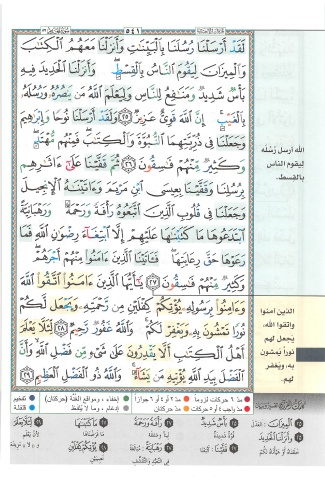 ٥٤١
لَقَدْ أَرْسَلْنَا رُسُلَنَا بِٱلْبَيِّنَٰتِ وَأَنزَلْنَا مَعَهُمُ ٱلْكِتَٰبَ
وَٱلْمِيزَانَ لِيَقُومَ ٱلنَّاسُ بِٱلْقِسْطِ ۖ وَأَنزَلْنَا ٱلْحَدِيدَ فِيهِ
بَأْسٌ شَدِيدٌ وَمَنَٰفِعُ لِلنَّاسِ وَلِيَعْلَمَ ٱللَّهُ مَن يَنصُرُهُۥ وَرُسُلَهُۥ
بِٱلْغَيْبِ ۚ إِنَّ ٱللَّهَ قَوِىٌّ عَزِيزٌ ﴿٢٥﴾ وَلَقَدْ أَرْسَلْنَا نُوحًا وَإِبْرَٰهِيمَ
وَجَعَلْنَا فِى ذُرِّيَّتِهِمَا ٱلنُّبُوَّةَ وَٱلْكِتَٰبَ ۖ فَمِنْهُم مُّهْتَدٍ ۖ
وَكَثِيرٌ مِّنْهُمْ فَٰسِقُونَ ﴿٢٦﴾ ثُمَّ قَفَّيْنَا عَلَىٰٓ ءَاثَٰرِهِم
بِرُسُلِنَا وَقَفَّيْنَا بِعِيسَى ٱبْنِ مَرْيَمَ وَءَاتَيْنَٰهُ ٱلْإِنجِيلَ
وَجَعَلْنَا فِى قُلُوبِ ٱلَّذِينَ ٱتَّبَعُوهُ رَأْفَةً وَرَحْمَةً وَرَهْبَانِيَّةً
ٱبْتَدَعُوهَا مَا كَتَبْنَٰهَا عَلَيْهِمْ إِلَّا ٱبْتِغَآءَ رِضْوَٰنِ ٱللَّهِ فَمَا
رَعَوْهَا حَقَّ رِعَايَتِهَا ۖ فَـَٔاتَيْنَا ٱلَّذِينَ ءَامَنُوا۟ مِنْهُمْ أَجْرَهُمْ ۖ
وَكَثِيرٌ مِّنْهُمْ فَٰسِقُونَ ﴿٢٧﴾ يَٰٓأَيُّهَا ٱلَّذِينَ ءَامَنُوا۟ ٱتَّقُوا۟ ٱللَّهَ
وَءَامِنُوا۟ بِرَسُولِهِۦ يُؤْتِكُمْ كِفْلَيْنِ مِن رَّحْمَتِهِۦ وَيَجْعَل لَّكُمْ
نُورًا تَمْشُونَ بِهِۦ وَيَغْفِرْ لَكُمْ ۚ وَٱللَّهُ غَفُورٌ رَّحِيمٌ ﴿٢٨﴾ لِّئَلَّا يَعْلَمَ
أَهْلُ ٱلْكِتَٰبِ أَلَّا يَقْدِرُونَ عَلَىٰ شَىْءٍ مِّن فَضْلِ ٱللَّهِ ۙ وَأَنَّ
ٱلْفَضْلَ بِيَدِ ٱللَّهِ يُؤْتِيهِ مَن يَشَآءُ ۚ وَٱللَّهُ ذُو ٱلْفَضْلِ ٱلْعَظِيمِ ﴿٢٩﴾
الله أرسل رُسُلَه
ليقوم الناس
بالقسط.
الذين آمنوا
واتقوا الله،
يجعل لهم
نوراً يمشون
به، ويغفر
لهم.
مد ٦ حركات لزوما
مد ٢ أو ٤ أو ٦ جوازاً
إخفاء، ومواقع الغُنَّة (حركتان)
تفخيم
مد واجب ٤ أو ٥ حركات
مد حركتان
إدغام، وما لا يُلفَظ
قلقلة